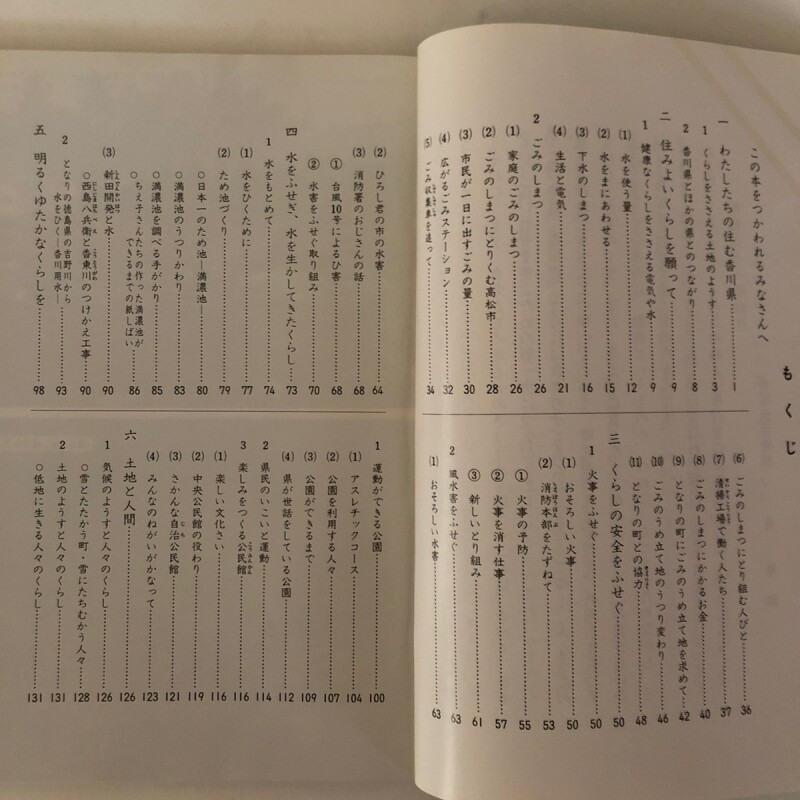 もくじ
この本をつかわれるみなさんへ
一 わたしたちの住む香川県……1
1 くらしをささえる土地のようす……3
2 香川県とほかの県とのつながり……8
二 住みよいくらしを願って……9
1 健康なくらしをささえる電気や水……9
(1) 水を使う量……12
(2) 水をまにあわせる……15
(3) 下水のしまつ……16
(4) 生活と電気……21
2 ごみのしまつ……26
(1) 家庭のごみのしまつ……26
(2) ごみのしまつにとりくむ高松市……28
(3) 市民が一日に出すごみの量……30
(4) 広がるごみステーション……32
(5) ごみ収集車を追って……34
(6) ごみのしまつにとり組む人びと……36
(7) 清掃工場で働く人たち……37
(8) ごみのしまつにかかるお金……40
(9) となりの町にごみのうめ立て地を求めて……42
(10) ごみのうめ立て地のうつり変わり……46
(11) となりの町との協力……48
三 くらしの安全をふせぐ……50
1 火事をふせぐ……50
(1) おそろしい火事……50
(2) 消防本部をたずねて……53
① 火事の予防……55
② 火事を消す仕事……57
③ 新しいとり組み……61
2 風水害をふせぐ……63
(1) おそろしい水害……63
(2) ひろし君の市の水害……64
(3) 消防署のおじさんの話……68
① 台風10号によるひ害……68
② 水害をふせぐ取り組み……70
四 水をふせぎ、水を生かしてきたくらし……73
1 水をもとめて……74
(1) 水をひくために……77
(2) ため池づくり……79
○日本一のため池―満濃池―……80
○満濃池のうつりかわり……83
○満濃池を調べる手がかり……85
○ちえ子さんたちの作った満濃池が
できるまでの紙しばい……86
(3) 新田開発と水……90
○西島八兵衛と香東川のつけかえ工事……90
2 となりの徳島県の吉野川から
水をひく―香川用水―……93
五 明るくゆたかなくらしを……98
1 運動ができる公園……100
(1) アスレチックコース……104
(2) 公園を利用する人々……107
(3) 公園ができるまで……109
(4) 県が世話をしている公園……112
2 県民のいこいと運動……114
3 楽しみをつくる公民館……116
(1) 楽しい文化さい……116
(2) 中央公民館の役わり……119
(3) さかんな自治公民館……121
(4) みんなのねがいがかなって……123
六 土地と人間……126
1 気候のようすと人々のくらし……126
○雪とたたかう町・雪にたちむかう人々……128
2 土地のようすと人々のくらし……131
○低地に生きる人々のくらし……131